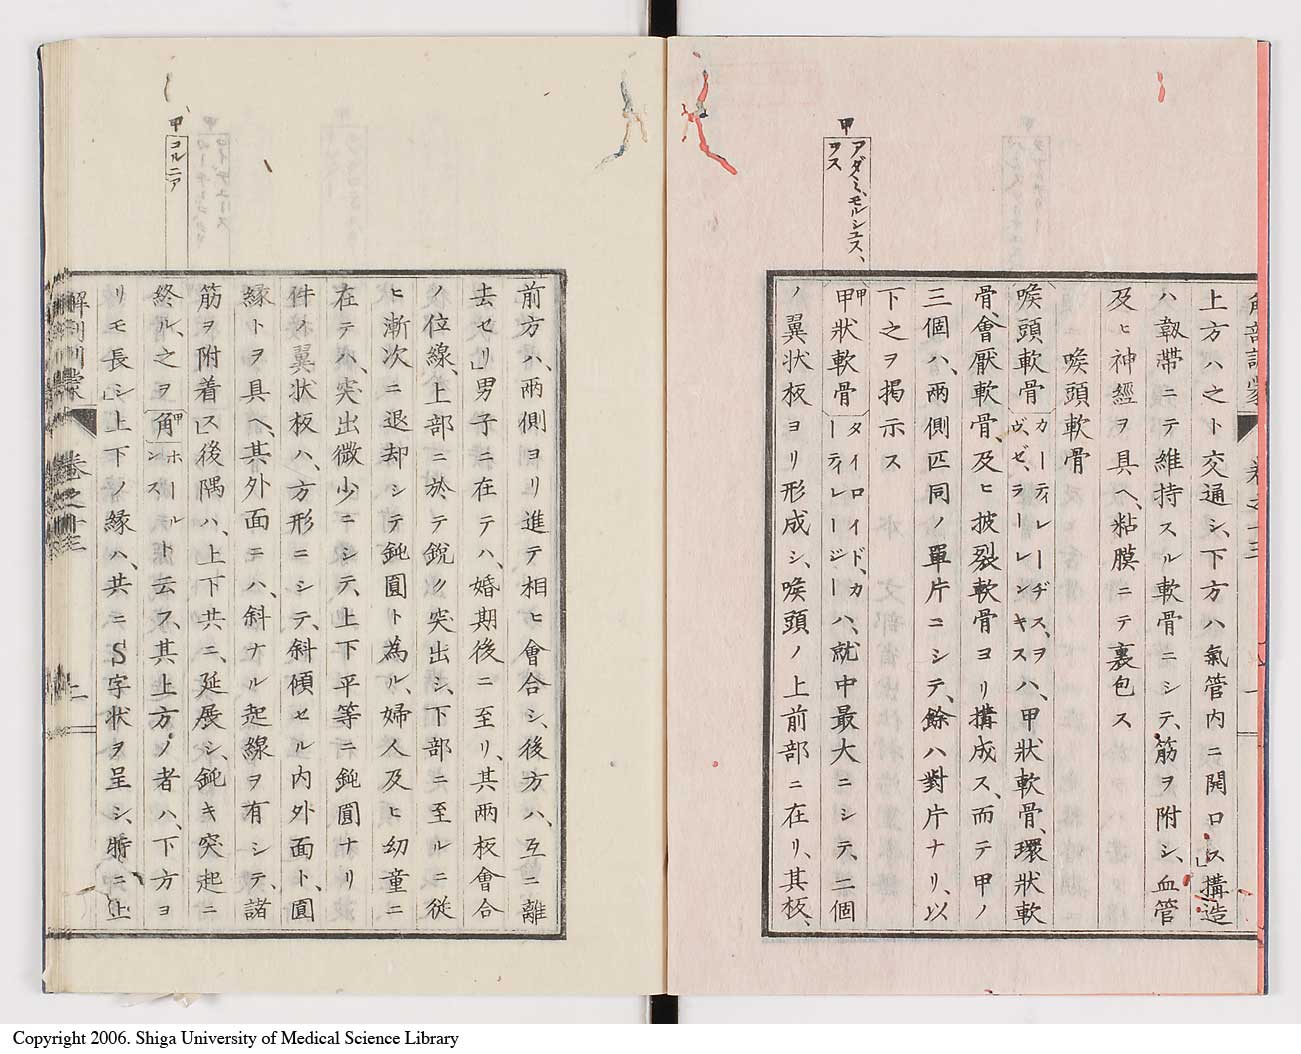 甲
アダミ、モルシュス、
ヲス
上方ハ之ト交通シ、下方ハ氣管内ニ開口ス」搆造
ハ韌帶ニテ維持スル軟骨ニシテ、筋ヲ附シ、血管
及ヒ神經ヲ具ヘ、粘膜ニテ裏包ス
喉頭軟骨
喉頭軟骨カーティレーヂス、ヲヴ、ゼ、ラーレンキスハ、甲狀軟骨、環狀軟
骨、會厭軟骨、及ヒ披裂軟骨ヨリ搆成ス、而テ甲ノ
三個ハ、兩側匹同ノ單片ニシテ、餘ハ對片ナリ、以
下之ヲ掲示ス
甲狀軟骨タイロイド、カーティレージーハ、就中最大ニシテ、二個
ノ翼狀板ヨリ形成シ、喉頭ノ上前部ニ在リ、其板、
甲
コルニア
前方ハ、兩側ヨリ進テ相ヒ會合シ、後方ハ、互ニ離
去セリ」男子ニ在テハ、婚期後ニ至リ、其兩板會合
ノ位線、上部ニ於テ銳ク突出シ、下部ニ至ルニ従
ヒ漸次ニ退却シテ鈍圓ト為ル、婦人及ヒ幼童ニ
在テハ、突出微少ニシテ、上下平等ニ鈍圓ナリ
件ノ翼状板ハ、方形ニシテ、斜傾セル内外面ト、圓
縁トヲ具ヘ、其外面ニハ、斜ナル起線ヲ有シテ、諸
筋ヲ附着ス」後隅ハ、上下共ニ、延展シ、鈍キ突起ニ
終ル、之ヲ角甲ホールンスト云フ、其上方ノ者ハ、下方ヨ
リモ長シ」上下ノ縁ハ、共ニS字状ヲ呈シ、將ニ上
解剖訓蒙 卷之十三 二
Copyright 2006. Shiga University of Medical Science Library